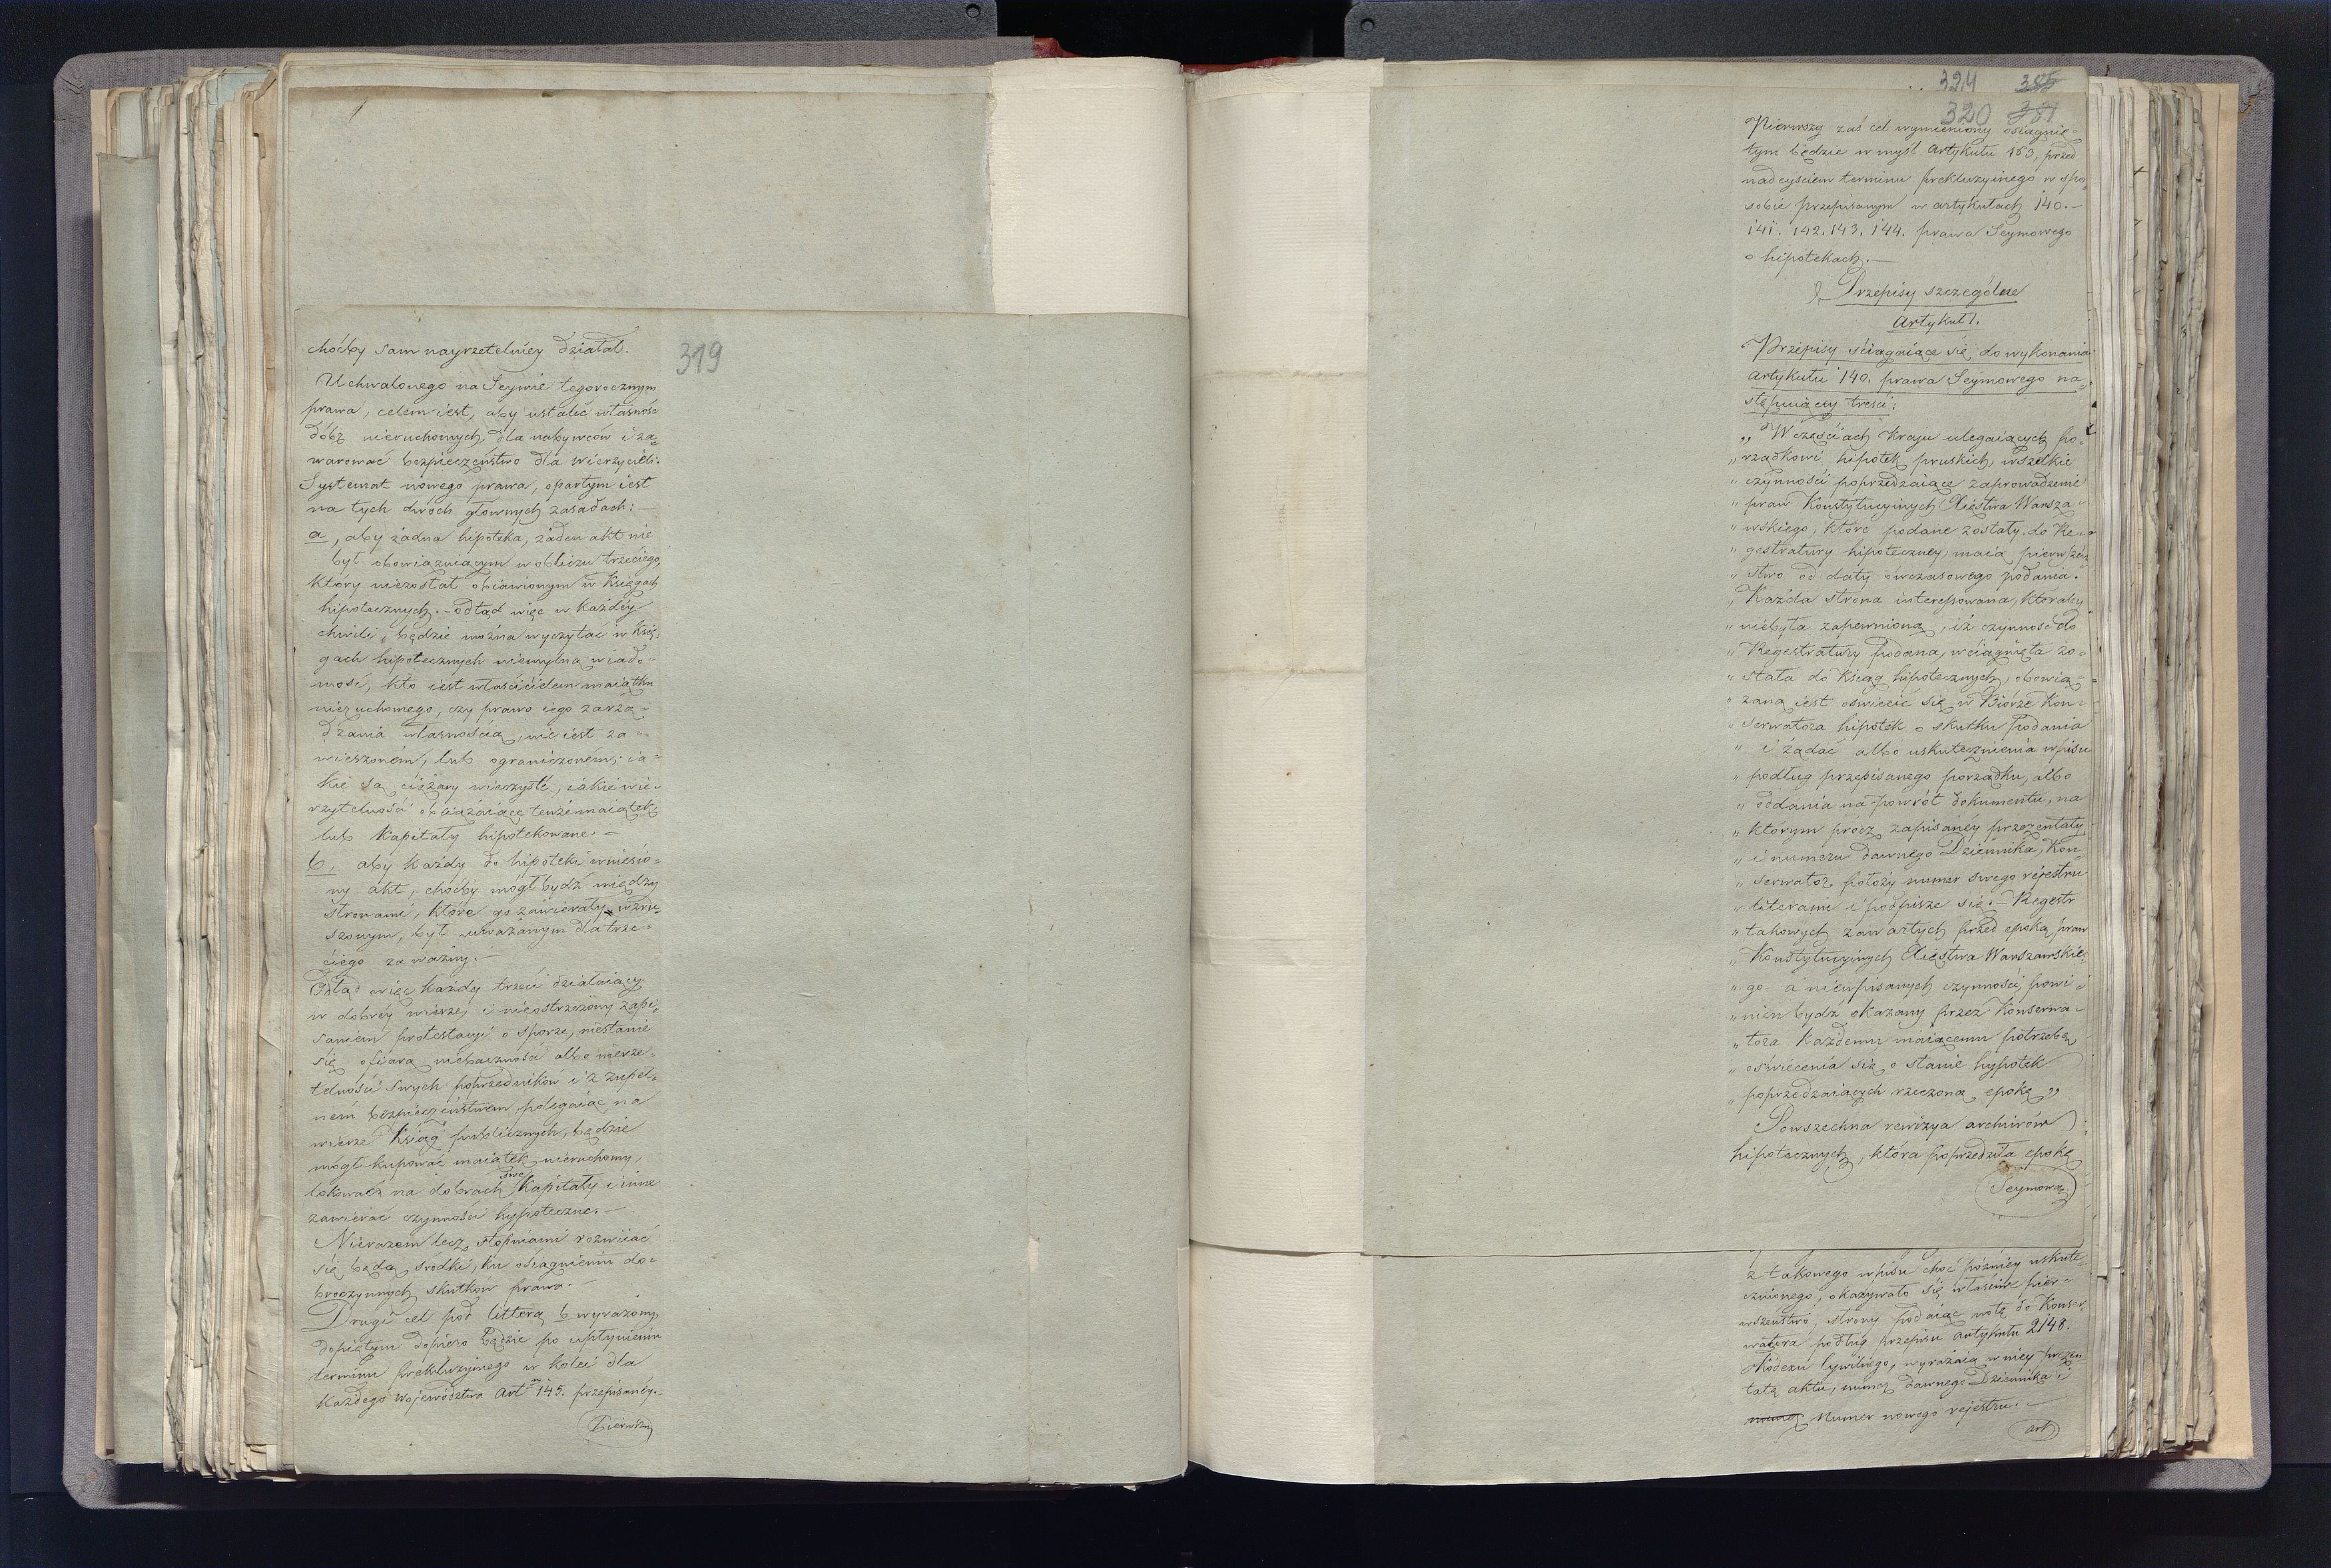 319
choćby sam nayrzetelniey działał.
Uchwalonego na Seymie tegorocznym
prawa, celem iest, aby ustalić własność
dóbr nieruchomych, dla nabywców i za=
warować bezpieczeństwo dla wierzycieli.
Systemat nowego prawa, opartym iest
na tych dwóch głownych zasadach: —
a, aby żadna hipoteka, żaden akt nie
był obowiązuiącym w obliczu trzeciego,
który niezostał obiawionym w Księgach
hipotecznych. – odtąd więc w każdéy
chwili będzie można wyczytać w Księ=
gach hipotecznych niemylną wiado=
mość, kto iest właścicielem maiątku
nieruchomego, czy prawo iego zarzą=
dzania własnością, nie iest za=
wieszoném, lub ograniczoném; ia=
kie są ciężary wieczyste, iakie wie=
rzytelności obciążaiące tenże maiątek
lub Kapitały hipotekowane. —
b, aby każdy do hipoteki wniesio=
ny akt, choćby mógł bydź między
stronami, które go zawierały, wzru=
szonym, był uważanym dla trze=
ciego za ważny. —
Odtąd więc każdy trzeci działaiący
w dobrey wierze, i nieostrzeżony zapi=
saniem protestacyi o sporze, niestanie
się ofiarą niebaczności albo nierze=
telności swych poprzedników i z zupeł=
ném bezpieczeństwem, polegaiąc na
wierze Ksiąg publicznych, będzie
mógł kupować maiątek nieruchomy,
lokować na dobrach swe Kapitały i inne
zawierać czynności hypoteczne. —
Nierazem lecz stopniami rozwiiać
się będą środki, ku osiągnieniu do=
broczynnych skutków prawa. —
Drugi cel pod litterą b wyrażony,
dopiętym dopiero będzie po upłynieniu
terminu prekluzyinego w kolei dla
każdego Województwa Art. 145. przepisanéy. –
Pierwszy
324 385
320 381
Pierwszy zaś cel wymieniony osiągnię=
tym będzie w myśl Artykułu 153, przed
nadeyściem terminu prekluzyinego w spo=
sobie przepisanym w artykułach 140. –
141. 142. 143. 144. prawa Seymowego
o hipotekach. —
Przepisy szczególne
Artykuł 1.
Przepisy ściągaiące się do wykonania
Artykułu 140. prawa Seymowego na=
stępuiącey treści:
„ W częściach Kraju ulegaiących po=
„ rządkowi hipotek pruskich, wszelkie
„ czynności poprzedzaiące zaprowadzenie
„ praw Konstytucyinych Xięstwa Warsza=
„ wskiego, które podane zostały do Re=
„ gestratury hipoteczney, maią pierwszeń=
„ stwo od daty ówczasowego podania.
„ Każda strona interessowana, któraby
„ niebyła zapewnioną, iż czynność do
„ Regestratury podana, wciągnięta zo=
„ stała do Ksiąg hipotecznych, obowią=
„ zaną iest oświecić się w Biórze Kon=
„ serwatora hipotek o skutku podania
„ i żądać albo uskutecznienia wpisu
„ podług przepisanego porządku, albo
„ oddania na powrót dokumentu, na
„ którym prócz zapisanéy prezentaty
„ i numeru dawnego Dziennika, Kon=
„ serwator położy numer swego rejestru
„ literami i podpisze się. – Regestr
„ takowych zawartych przed epoką praw
„ Konstytucyinych Xięstwa Warszawskie=
„ go a niewpisanych czynności, powi=
„ nien bydź okazany przez Konserwa=
„ tora Każdemu maiącemu potrzebę
„ oświecenia się o stanie hypotek
„ poprzedzaiących rzeczoną epokę „
Powszechna rewizya archiwów
hipotecznych, która poprzedziła epokę
Seymową
z takowego wpisu choć późniéy uskute=
cznionego, okazywało się właściwe pier=
wszeństwo, strony podaiąc notę do Konser=
watora podług przepisu artykułu 2148.
Kodexu Cywilnego, wyrażaią w niey prezen=
tatę aktu, numer dawnego Dziennika i
numer Numer nowego rejestru. –
art